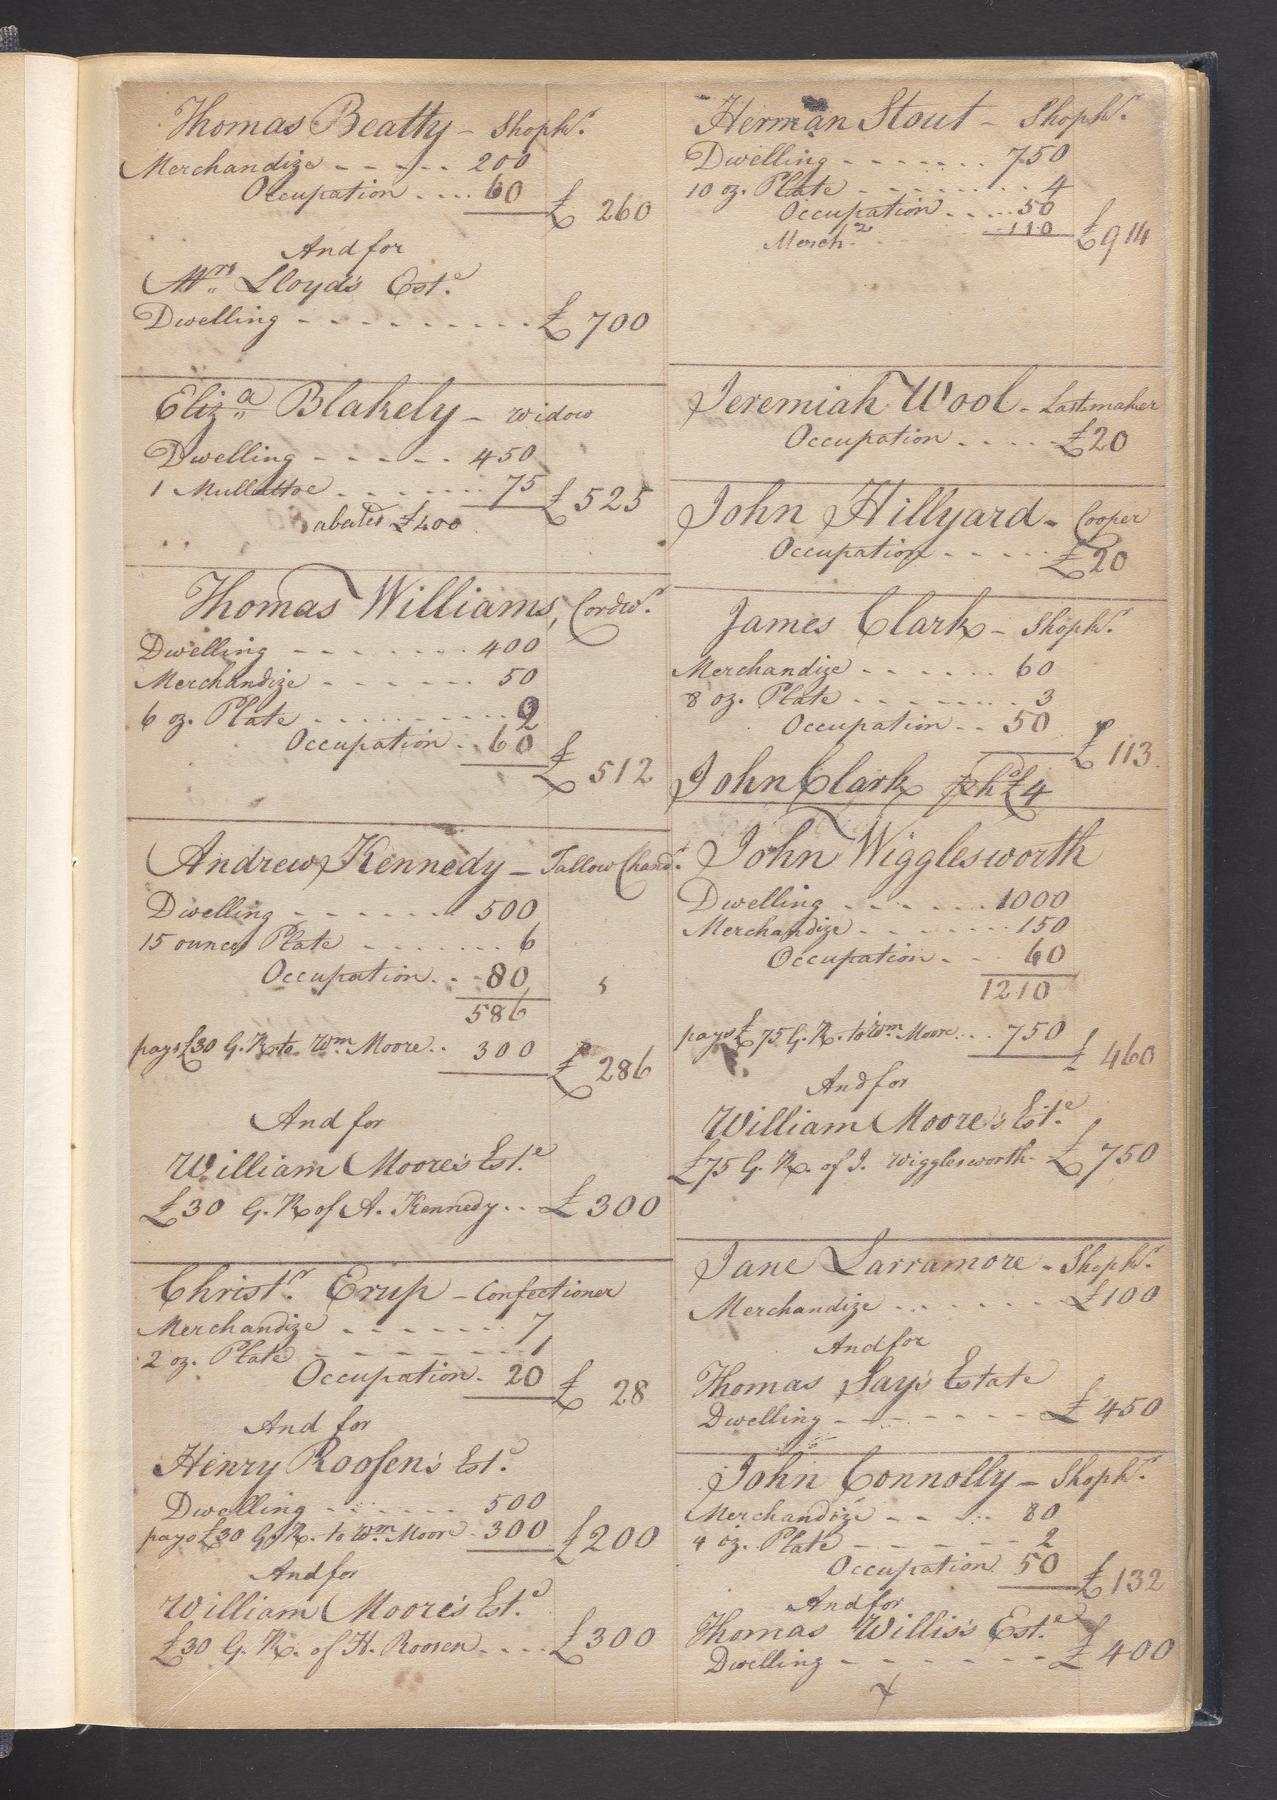 Thomas Beatty - Shopkr.
Merchandize - - - - - 200
Occupation .... 60 £ 260
And for
Mrs. Lloyd's Este.
Dwelling - - - - - - - - - £ 700
Eliza. Blakely - Widow
Dwelling - - - - - 450
1 Mullattoe - - - - - 75 £ 525
abated £400
Thomas Williams, Cordwr.
Dwelling - - - - - - - 400
Merchandize - - - - - - 50
6 oz. Plate - - - - - - - 2
Occupation .. 60 £ 512
Andrew Kennedy - Tallow Chandr.
Dwelling - - - - - - - 500
15 ounces Plate - - - - - - 6
Occupation. - - 80
586
pays £30 G. R. to Wm. Moore .. 300 £ 286
And for
William Moore's Este.
£30 G. R. of A. Kennedy .. £ 300
Christr. Erup - Confectioner
Merchandize - - - - - - 7
2 oz. Plate - - - - - - - 1
Occupation. 20 £ 28
And for
Henry Roosen's Este.
Dwelling - - - - - - 500
pays £30 G. R. to Wm. Moore. 300 £ 200
And for
William Moore's Este.
£30 G. R. of H. Roosen .... £ 300
Herman Stout - Shopkr.
Dwelling - - - - - - - 750
10 oz. Plate - - - - - - - - 4
Occupation ..... 50
Merchz. 110 £ 914
Jeremiah Wool - Lastmaker
Occupation - - - - - £20
John Hillyard - Cooper
Occupation - - - - - £20
James Clark - Shopkr.
Merchandize - - - - - - 60
8 oz. Plate - - - - - - - 3
Occupation - - 50 £ 113
John Clark £4
John Wigglesworth
Dwelling - - - - - - - 1000
Merchandize - - - - - - - 150
Occupation - - - 60
1210
pays £75 G. R. to Wm. Moore ... 750 £ 460
And for
William Moore's Este.
£75 G. R. of J. Wigglesworth - £ 750
Jane Larramore - Shopkr.
Merchandize - - - - - - - £100
And for
Thomas Say's Estate
Dwelling - - - - - - - £ 450
John Connolly - Shopkr.
Merchandize - - - - 80
4 oz. Plate - - - - - - 2
Occupation 50 £ 132
And for
Thomas Willis's Este.
Dwelling - - - - - - - £ 400